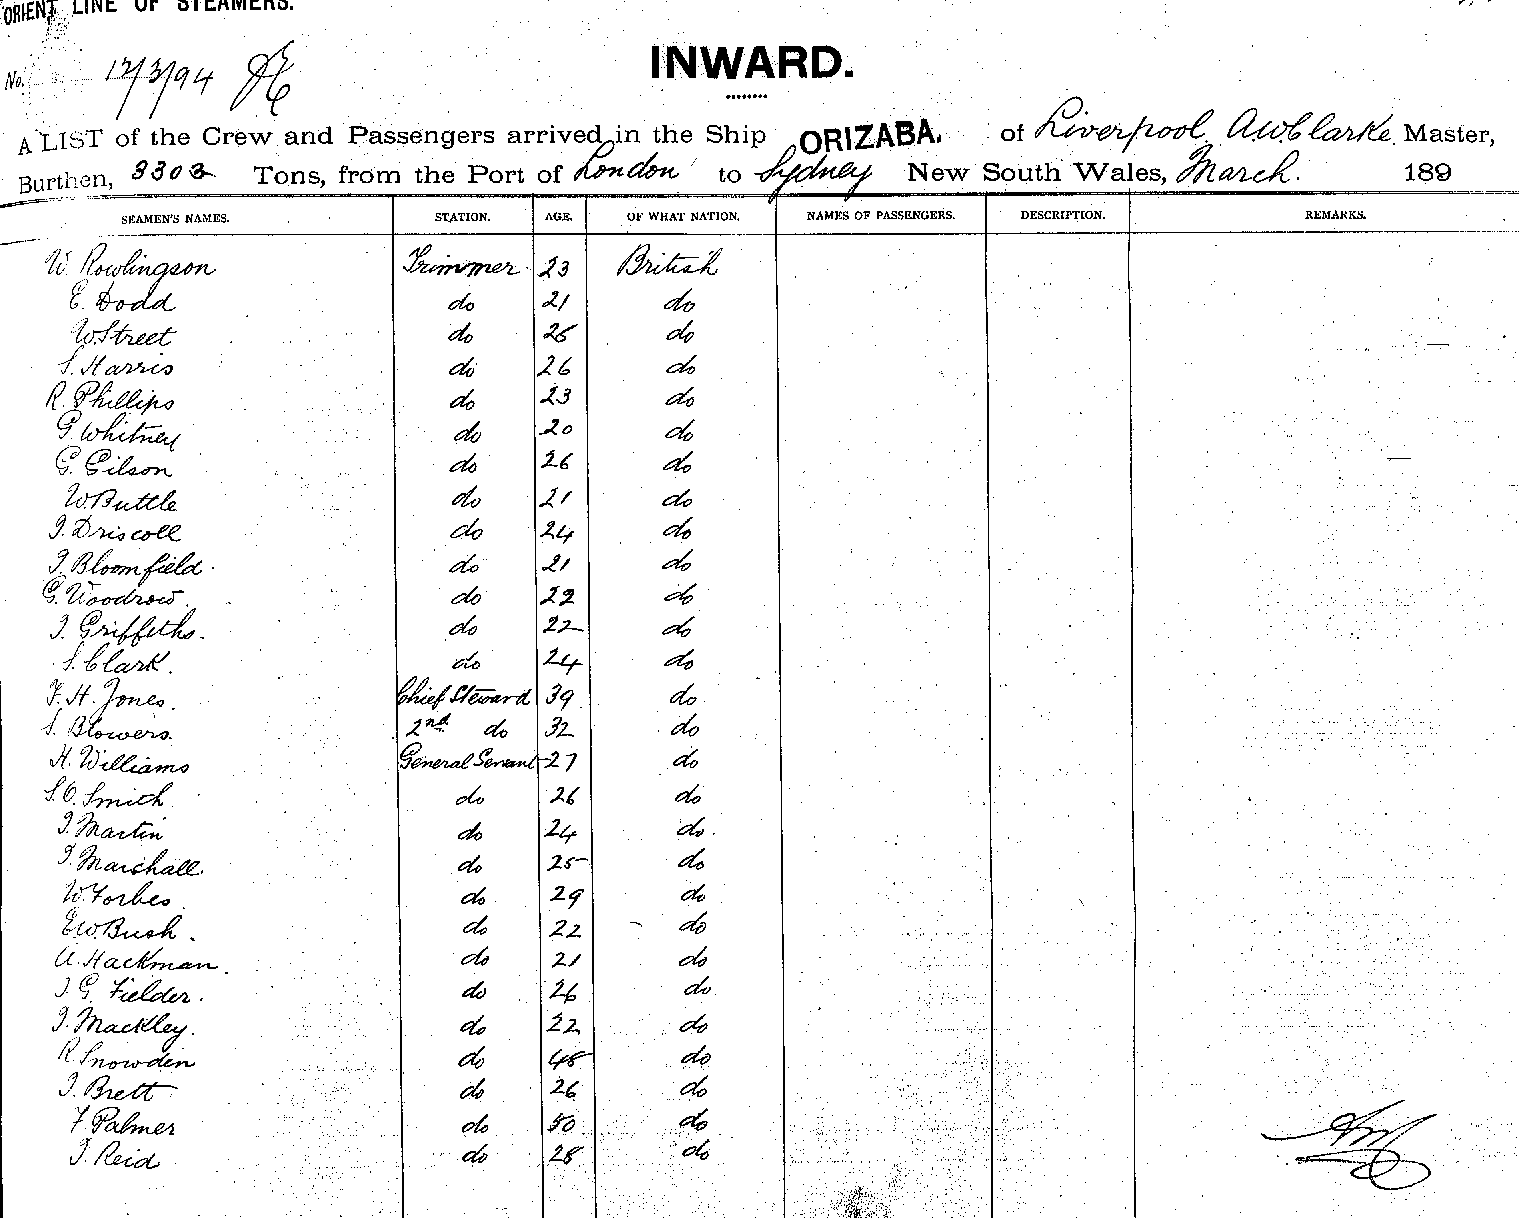 ORIENT LINE OF STEAMERS.
INWARD.
No. 12/3/94
A LIST of the Crew and Passengers arrived in the Ship ORIZABA. of Liverpool A.W. Clarke. Master,
Burthen, 3303 Tons, from the Port of London to Sydney New South Wales, March. 189
SEAMEN'S NAMES. STATION. AGE. OF WHAT NATION. NAMES OF PASSENGERS. DESCRIPTION. REMARKS.
W. Rowlingson Trimmer 23 British
E. Dodd do 21 do
W Street do 25 do
S. Harris do 26 do
R. Phillips do 23 do
G. Whitney do 20 do
G. Gilson do 26 do
W. Buttle do 21 do
J. Driscoll do 24 do
J. Bloomfield do 21 do
G. Woodrow do 22 do
J. Griffeths. do 22 do
S. Clark. do 24 do
F. H. Jones. Chief Steward 39 do
S. Blowers. 2nd do 32 do
H. Williams General Servant 27 do
S. O. Smith do 26 do
J. Martin do 24 do.
J. Marshall. do 25 do
W. Forbes do 29 do
E W. Bush. do 22 do
A. Hackman. do 21 do
J. G. Fielder. do 26 do
J. Mackley. do 22 do
R Snowden do 48 do
J. Brett do 26 do
F Palmer do 50 do
J. Reid do 28 do